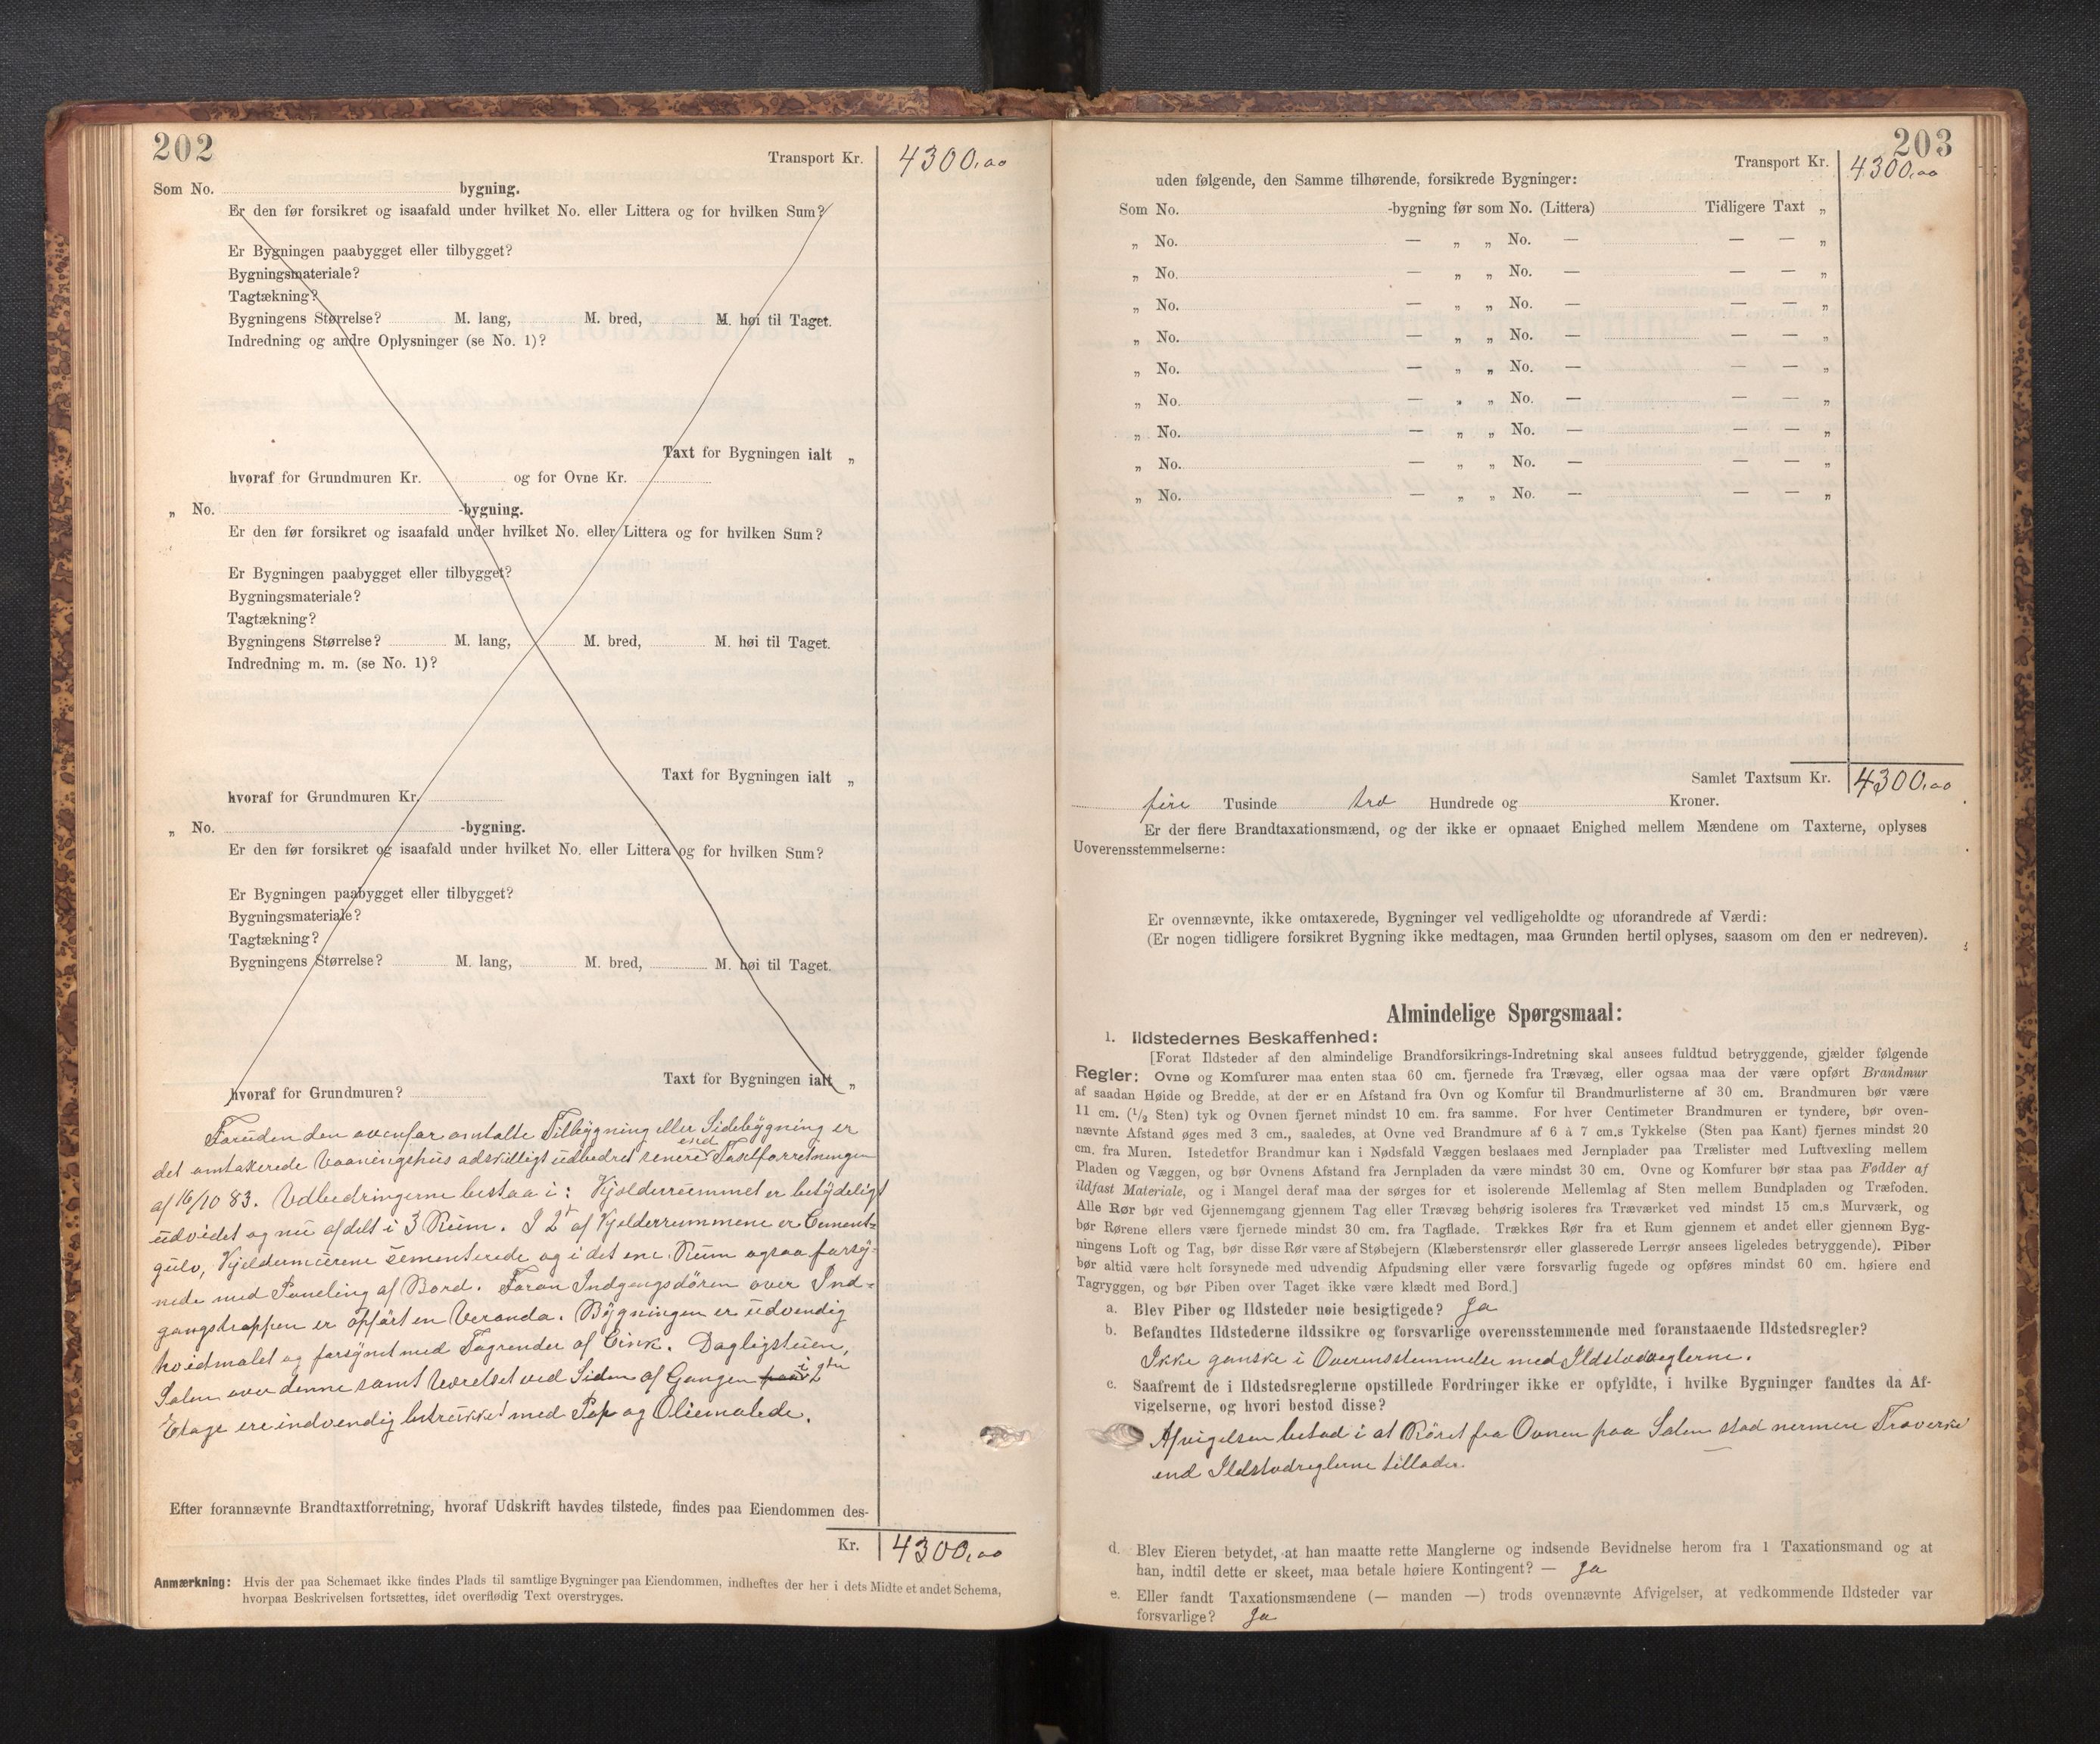 202
Transport Kr. 4300,00
Som No. bygning.
Er den før forsikret og isaafald under hvilket No. eller Littera og for hvilken Sum?
Er Bygningen paabygget eller tilbygget?
Bygningsmateriale?
Tagtækning?
Bygningens Størrelse? M. lang, M. bred, M. høi til Taget.
Indredning og andre Oplysninger (se No. 1)?
Taxt for Bygningen ialt „
hvoraf for Grundmuren Kr. og for Ovne Kr.
„ No. -bygning.
Er den før forsikret og isaafald under hvilket No. eller Littera og for hvilken Sum?
Er Bygningen paabygget eller tilbygget?
Bygningsmateriale?
Tagtækning?
Bygningens Størrelse? M. lang, M. bred, M. høi til Taget.
Indredning m. m. (se No. 1)?
Taxt for Bygningen ialt „
hvoraf for Grundmuren Kr.
„ No. -bygning.
Er den før forsikret og isaafald under hvilket No. eller Littera og for hvilken Sum?
Er Bygningen paabygget eller tilbygget?
Bygningsmateriale?
Tagtækning?
Bygningens Størrelse? M. lang, M. bred, M. høi til Taget.
Taxt for Bygningen ialt „
hvoraf for Grundmuren?
Foruden den ovenfor omtalte Tilbygning eller Sidebygning er
det omtaxerede Vaaningshus adskilligt udbedret senere end Taxtforretningen
af 16/10 83. Udbedringerne bestaa i: Kjelderrummet er betydeligt
udvidet og nu afdelt i 3 Rum. I 2 af Kjelderrummene er Cement-
gulv, Kjeldermurene sementerede og i det ene Rum ogsaa forsy-
nede med Paneling af Bord. Foran Indgangsdøren over Ind-
gangstrappen er opført en Veranda. Bygningen er udvendig
hvidmalet og forsynet med Tagrender af Cink. Dagligstuen,
Salen over denne samt Værelset ved Siden af Gangen paa i 2den
Etage ere indvendig betrukket med Pap og Oliemalede.
Efter forannævnte Brandtaxtforretning, hvoraf Udskrift havdes tilstede, findes paa Eiendommen des-
Kr. 4300,00
Anmærkning: Hvis der paa Schemaet ikke findes Plads til samtlige Bygninger paa Eiendommen, indheftes der her i dets Midte et andet Schema,
hvorpaa Beskrivelsen fortsættes, idet overflødig Text overstryges.
203
Transport Kr. 4300,00
uden følgende, den Samme tilhørende, forsikrede Bygninger:
Som No. -bygning før som No. (Littera) Tidligere Taxt „
„ No. — „ „ No. — — — „
„ No. — „ „ No. — — — „
„ No. — „ „ No. — — — „
„ No. — „ „ No. — — — „
„ No. — „ „ No. — — — „
„ No. — „ „ No. — — — „
„ No. — „ „ No. — — — „
„ No. — „ „ No. — — — „
„ No. — „ „ No. — — — „
Samlet Taxtsum Kr. 4300,00
fire Tusinde tre Hundrede og Kroner.
Er der flere Brandtaxationsmænd, og der ikke er opnaaet Enighed mellem Mændene om Taxterne, oplyses
Uoverensstemmelserne:
Er ovennævnte, ikke omtaxerede, Bygninger vel vedligeholdte og uforandrede af Værdi:
(Er nogen tidligere forsikret Bygning ikke medtagen, maa Grunden hertil oplyses, saasom om den er nedreven).
Almindelige Spørgsmaal:
1. Ildstedernes Beskaffenhed:
[Forat Ildsteder af den almindelige Brandforsikrings-Indretning skal ansees fuldtud betryggende, gjælder følgende
Regler: Ovne og Komfurer maa enten staa 60 cm. fjernede fra Trævæg, eller ogsaa maa der være opført Brandmur
af saadan Høide og Bredde, at der er en Afstand fra Ovn og Komfur til Brandmurlisterne af 30 cm. Brandmuren bør være
11 cm. (1/2 Sten) tyk og Ovnen fjernet mindst 10 cm. fra samme. For hver Centimeter Brandmuren er tyndere, bør oven-
nævnte Afstand øges med 3 cm., saaledes, at Ovne ved Brandmure af 6 à 7 cm.s Tykkelse (Sten paa Kant) fjernes mindst 20
cm. fra Muren. Istedetfor Brandmur kan i Nødsfald Væggen beslaaes med Jernplader paa Trælister med Luftvexling mellem
Pladen og Væggen, og bør Ovnens Afstand fra Jernpladen da være mindst 30 cm. Ovne og Komfurer bør staa paa Fødder af
ildfast Materiale, og i Mangel deraf maa der sørges for et isolerende Mellemlag af Sten mellem Bundpladen og Træfoden.
Alle Rør bør ved Gjennemgang gjennem Tag eller Trævæg behørig isoleres fra Træværket ved mindst 15 cm.s Murværk, og
bør Rørene ellers være fjernede mindst 30 cm. fra Tagflade. Trækkes Rør fra et Rum gjennem et andet eller gjennem Byg-
ningens Loft og Tag, bør disse Rør være af Støbejern (Klæberstensrør eller glasserede Lerrør ansees ligeledes betryggende). Piber
bør altid være helt forsynede med udvendig Afpudsning eller være forsvarlig fugede og opføres mindst 60 cm. høiere end
Tagryggen, og bør Piben over Taget ikke være klædt med Bord.]
a. Blev Piber og Ildsteder nøie besigtigede? Ja
b. Befandtes Ildstederne ildssikre og forsvarlige overensstemmende med foranstaaende Ildstedsregler?
Ikke ganske i Overensstemmelse med Ildstedsreglerne.
c. Saafremt de i Ildstedsreglerne opstillede Fordringer ikke er opfyldte, i hvilke Bygninger fandtes da Af-
vigelserne, og hvori bestod disse?
Afvigelsen bestod i at Røret fra Ovnen paa Salen stod nermere Træverke
end Ildstedreglerne tillader.
d. Blev Eieren betydet, at han maatte rette Manglerne og indsende Bevidnelse herom fra 1 Taxationsmand og at
han, indtil dette er skeet, maa betale høiere Kontingent? — Ja
e. Eller fandt Taxationsmændene (— manden —) trods ovennævnte Afvigelser, at vedkommende Ildsteder var
forsvarlige? Ja